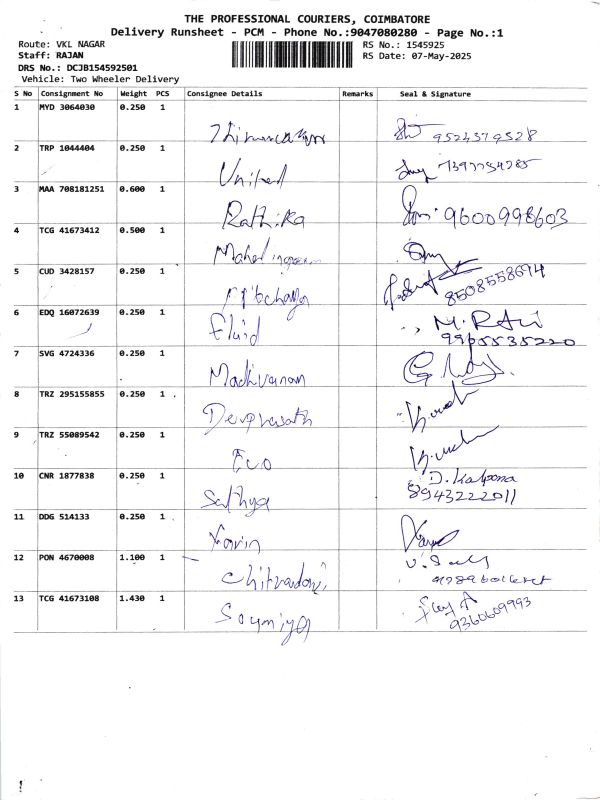 THE PROFESSIONAL COURIERS, COIMBATORE
Delivery Runsheet - PCM - Phone No.:9047080280 - Page No.:1
Route: VKL NAGAR
RS No.: 1545925
Staff: RAJAN
RS Date: 07-May-2025
DRS No.: DCJB154592501
Vehicle: Two Wheeler Delivery
S No Consignment No Weight PCS Consignee Details Remarks Seal & Signature
1 MYD 3064030 0.250 1
9524379528
2 TRP 1044404 0.250 1
United
3 MAA 708181251 0.600 1
Rathika 9600998603
4 TCG 41673412 0.500 1
5 CUD 3428157 0.250 1
8508558694
6 EDQ 16072639 0.250 1
Fluid M. Ravi
9965535220
7 SVG 4724336 0.250 1
Madhivanan
8 TRZ 295155855 0.250 1
Devprasath
9 TRZ 55089542 0.250 1
Evo
10 CNR 1877838 0.250 1
Sathya D. Kalpana
8943222011
11 DDG 514133 0.250 1
12 PON 4670008 1.100 1
13 TCG 41673108 1.430 1
Soumiya
9360609993